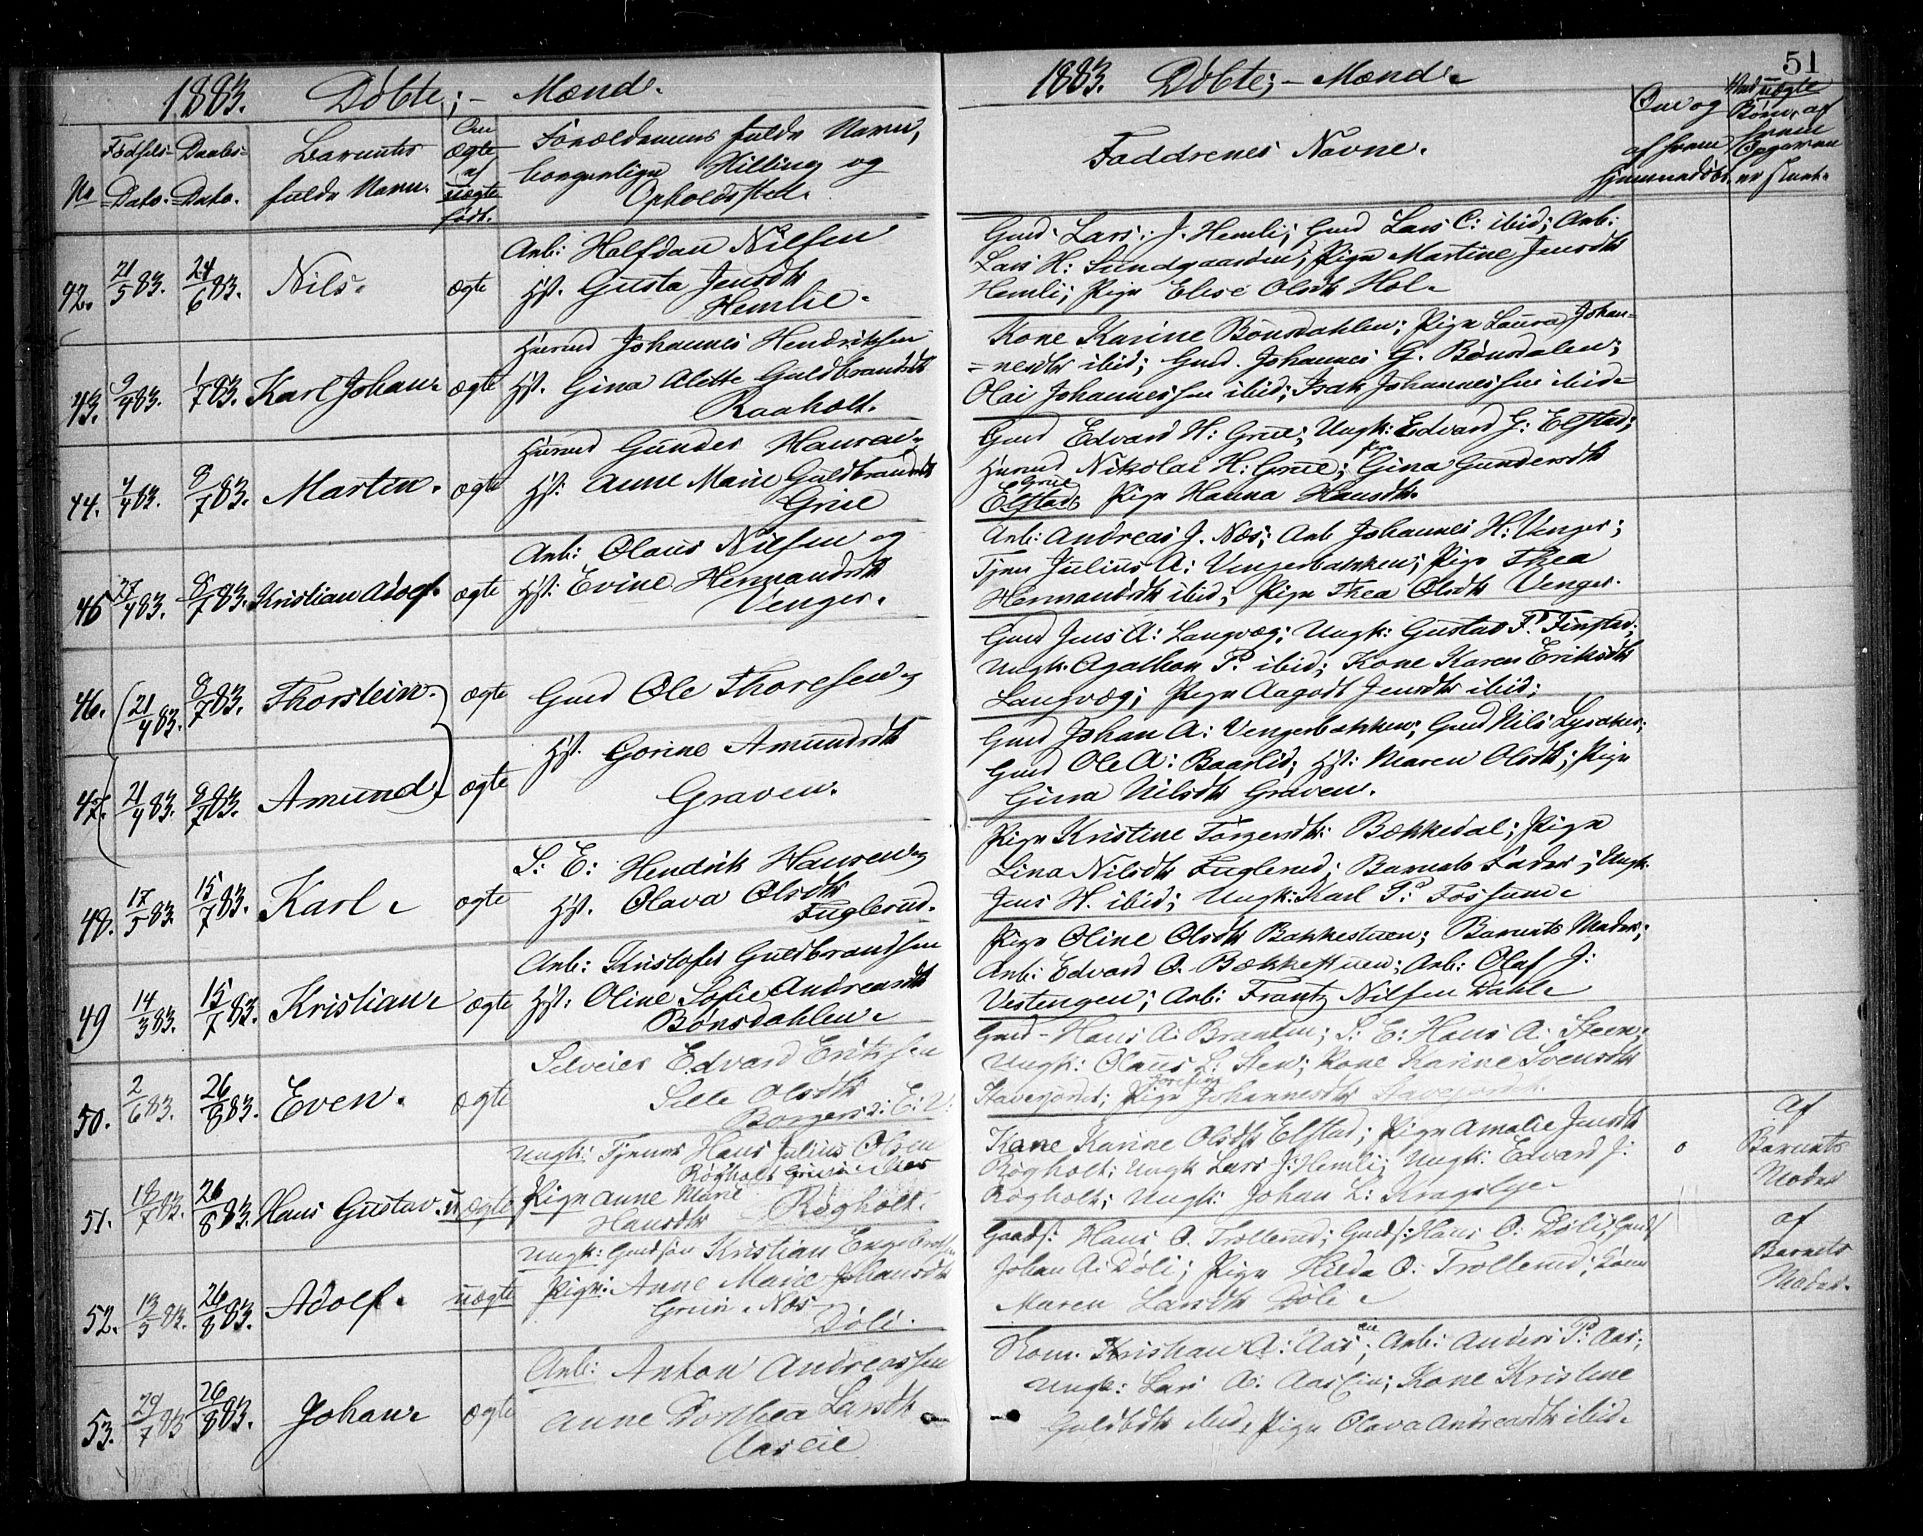 1883. Døbte; - Mænd.
No
Fødsels-
Dato.
Daabs-
Dato.
Barnets
fulde Navn.
Om
ægte
el
uægte
født.
Forældrenes fulde Navn,
borgerlige Stilling og
Opholdssted.
42. 21/5 83. 24/6 83. Nils. ægte
Arb: Halfdan Nilsen
Hst. Gusta Jensdtr
Hemlie.
43. 9/4 83. 1/7 83. Karl Johan. ægte
Huusmd Johannes Hendriksen
Hst. Gina Alette Guldbrandsdt
Raaholt.
44. 4/4 83. 8/7 83. Martin. ægte
Husmd Gunder Hansen
Hst. Anne Marie Guldbrandsdt
Grue
45 27/4 83. 8/7 83. Kristian Adolf. ægte
Arb: Olaus Nilsen og
Hst: Evine Hermandsdt
Venger.
46. 21/4 83. 8/7 83. Thorstein. ægte
Gmd Ole Thoresen og
47. 21/4 83. 8/7 83. Amund. ægte
Hst. Gorine Amundsdt
Graven.
48. 17/5 83. 15/7 83. Karl. ægte
S: E: Hendrik Hansen og
Hst. Olava Olsdtr
Fuglerud.
49 14/3 83. 15/7 83. Kristian. ægte
Arb: Kristofer Guldbrandsen
Hst: Oline Sofie Andreasdt
Bønsdahlen.
50. 2/6 83. 26/8 83. Even. ægte
Selveier Edvard Eriksen
Sille Olsdtr
Borgers: E: V:
51. 18/7 83. 26/8 83. Hans Gustav. uægte
Ungk: Tjener Hans Julius Olsen
Røgholt
Pige Anne Marie
Hansdtr Røgholt.
52. 13/5 83. 26/8 83. Adolf. uægte
Ungk: Gmdsøn Kristian Engebretsen
Pige: Anne Marie Johansdt
Døli.
53. 29/7 83 26/8 83. Johan. ægte
Arb: Anton Andreassen
Anne Dorthea Larsdt
Aaseie
1883. Døbte; - Mænd.
51
Faddrenes Navne.
Om og
af hvem
hjemmedøbt.
Ved uægte
Børn, af
hvem
Opgaven
er skeet.
Gmd. Lars J. Hemli; Gmd Lars C: ibid; Arb:
Lars H: Sundgaarden; Pige Martine Jensdtr
Hemli; Pige Elise Olsdtr Hol.
Kone Karine Bønsdahlen; Pige Laura Johan=
=nesdtr ibid; Gmd. Johannes G. Bønsdalen;
Olai Johannessen ibid; Isak Johannessen ibid.
Gmd Edvard H: Grue; Ungk: Edvard G: Elstad;
Husmd Nikolai H: Grue; Pige Gina Gundersdt
Grue
Elstad; Pige Hanna Hansdtr.
Arb: Andreas J. Næs; Arb Johannes H: Venger;
Tjener Julius A: Vengerbakken; Pige Thea
Hermandsdt ibid; Pige Thea Olsdtr Venger.
Gmd Jens A: Langvæg; Ungk: Gustav P. Finstad;
Ungk. Agathon P. ibid; Kone Karen Eriksdtr
Langvæg; Pige Aagodt Jensdtr ibid;
Gmd Johan A: Vengerbakken; Gmd Nils Lysaker;
Gmd Ole A: Baarlid; Hst: Maren Olsdtr; Pige
Gina Nilsdtr Graven.
Pige Kristine Torgersdt: Bækkedal; Pige
Lina Nilsdt Fuglerud; Barnets Fader; Ungk:
Jens H. ibid; Ungk: Karl P: Fossum.
Pige Oline Olsdtr Bakkestuen; Barnets Moder;
Arb: Edvard O. Bækkestuen; Arb: Olaf J:
Vestengen; Arb: Frantz Nilsen Dahl.
Gmd - Hans A: Braaten; S: E: Hans A. Steen;
Ungk: Olaus L. Sten; Kone Karine Svensdtr
Stavesjordet; Pige Josefine Johannesdtr
Kone Karine Olsdtr Elstad; Pige Amalie Jensdt
Røgholt; Ungk Lars J: Hemli; Ungk: Edvard J:
Røgholt; Ungk: Johan L: Kragslye.
Af
Barnets
Moder
Hans O. Trollerud; Hans O: Døli;
Johan A: Døli; Pige Hilda O: Trollerud; Kone
Maren Larsdtr Døli.
af
Barnets
Moder.
Kristian A: Aaseie; Arb: Anders P: Aas;
Ungk: Lars A: Aaseie; Kone Kristine
Guldbdtr ibid, Pige Olava Andreasdtr ibid.